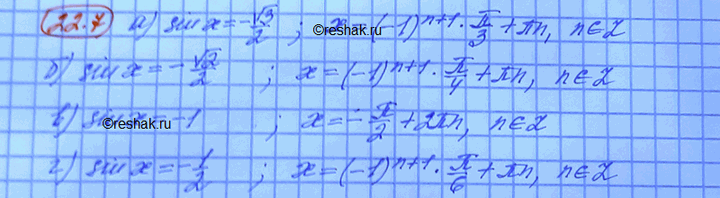 22.7 а) sin x = -√3/2 ; x = (-1)^(n+1) · π/3 + πn, n∈Z
©reshak.ru
б) sin x = -√2/2 ; x = (-1)^(n+1) · π/4 + πn, n∈Z
в) sin x = -1 ; x = -π/2 + 2πn, n∈Z
©reshak.ru
г) sin x = -1/2 ; x = (-1)^(n+1) · π/6 + πn, n∈Z